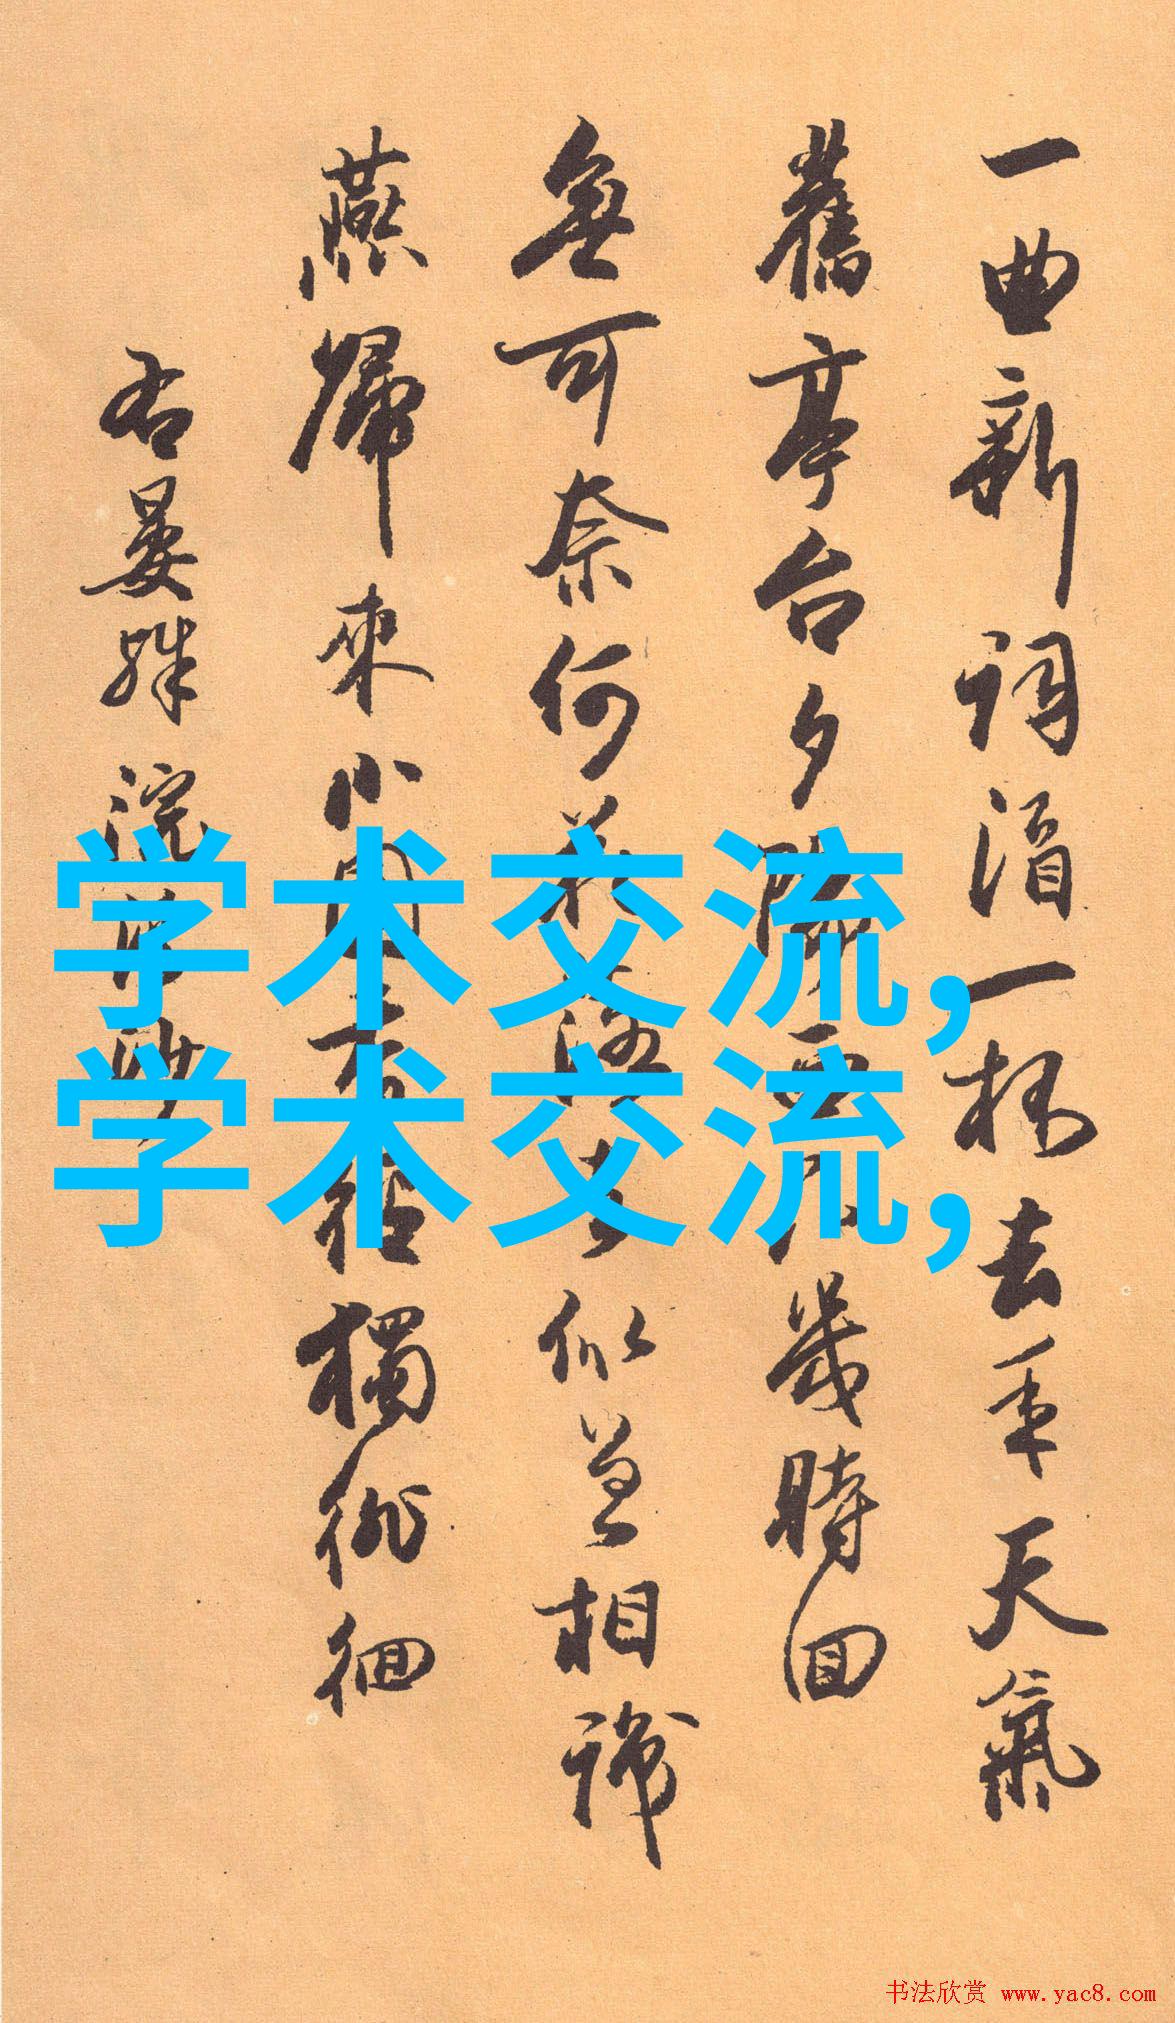 一曲新詞酒一杯去年天氣
舊亭台夕陽西下幾時回
無可奈何花落去似曾相識
燕歸來小園香徑獨徘徊
右晏殊浣溪沙
学术交流,
学术交流,
书法欣赏 www.yac8.com